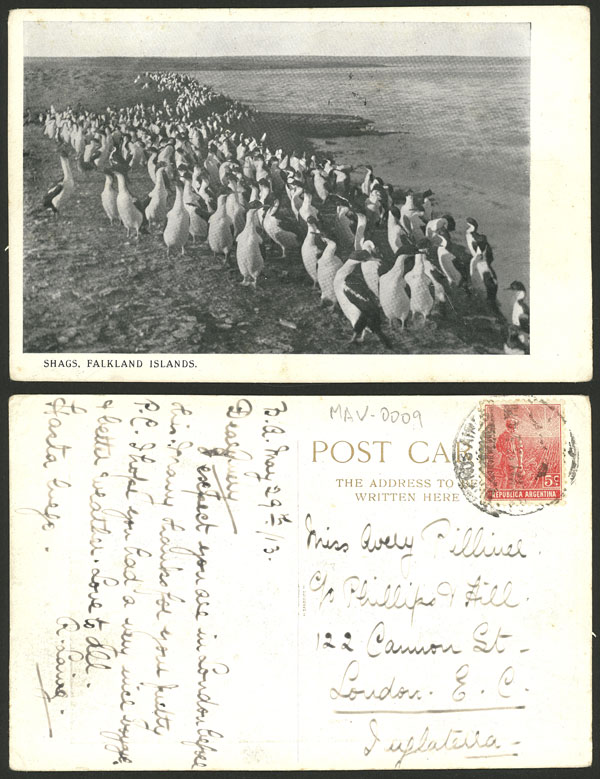 SHAGS, FALKLAND ISLANDS.
MAV-0009
POST CAR
THE ADDRESS TO
WRITTEN HERE
5c
REPUBLICA ARGENTINA
B.A. May 29th/13.
Dear Avery
I expect you are in London before
this. Many thanks for your pretty
P.C. I hope you had a very nice voyage
& better weather. Love to all.
Hasta luego.
Miss Avery
c/o Phillips & Hill.
122 Cannon St-
London. E. C.
Inglaterra